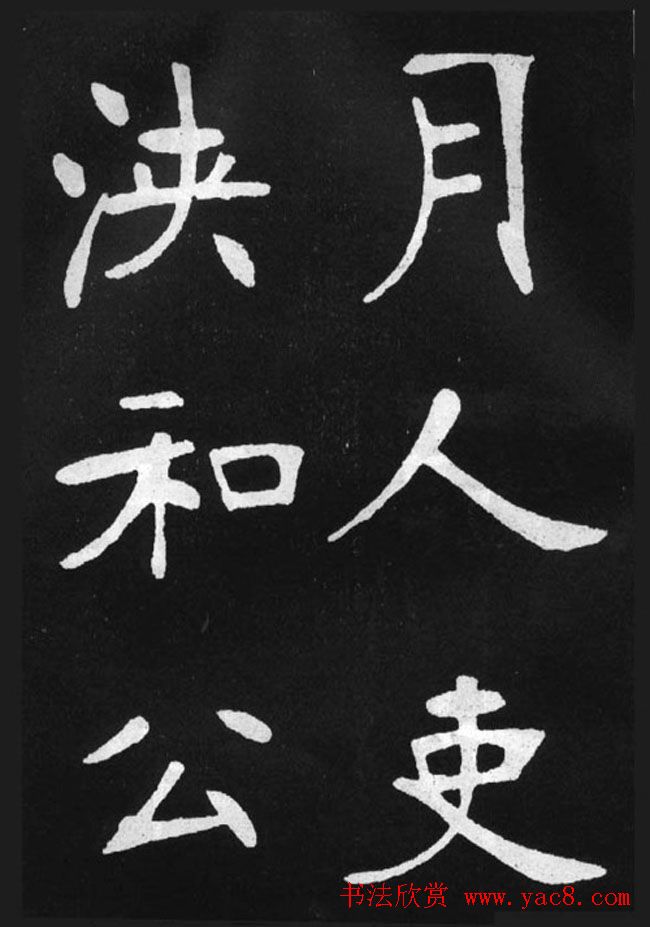 月人吏
浃和公
书法欣赏 www.yac8.com